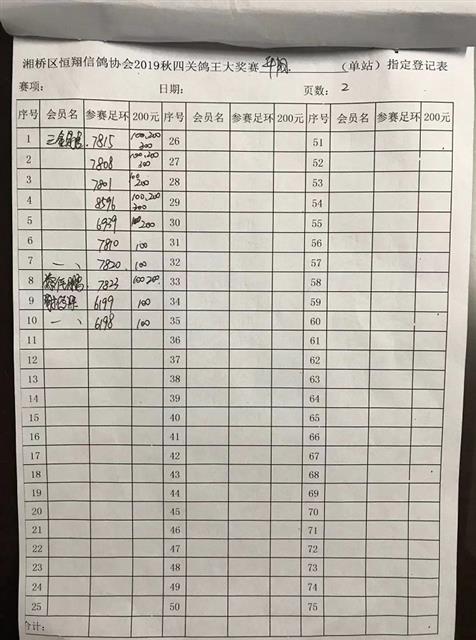 湘桥区恒翔信鸽协会2019秋四关鸽王大奖赛 (单站)指定登记表
赛项: 日期: 页数: 2
序号 会员名 参赛足环 200元 序号 会员名 参赛足环 200元 序号 会员名 参赛足环 200元
1 7815 100,200 300 26 51
2 7808 100,200 300 27 52
3 7801 100 200 28 53
4 8596 100,200 300 29 54
5 6939 100 200 30 55
6 7810 100 31 56
7 7820 100 32 57
8 7823 100 200 33 58
9 6199 100 34 59
10 6198 100 35 60
11 36 61
12 37 62
13 38 63
14 39 64
15 40 65
16 41 66
17 42 67
18 43 68
19 44 69
20 45 70
21 46 71
22 47 72
23 48 73
24 49 74
25 50 75
合计: